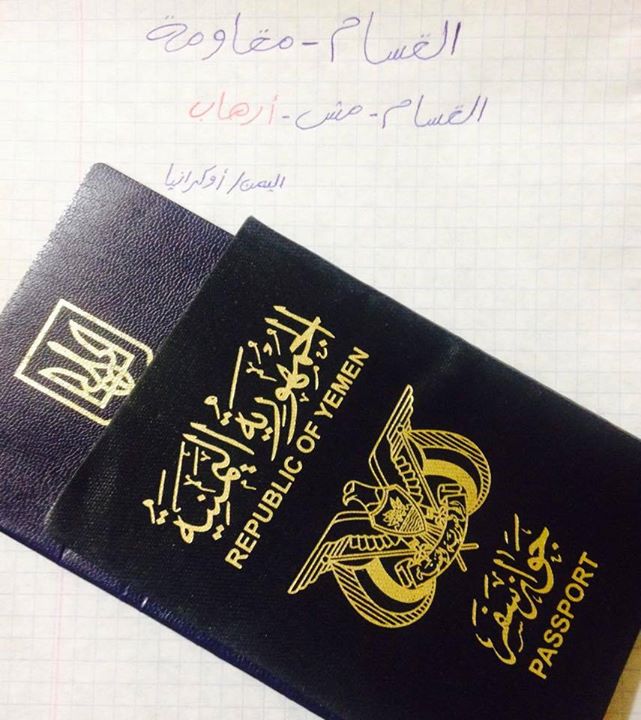 القسام - مقاومة
القسام - مش - أرهاب
اليمن/أوكرانيا
الجمهورية اليمنية
REPUBLIC OF YEMEN
الجمهورية اليمنية
جواز سفر
PASSPORT